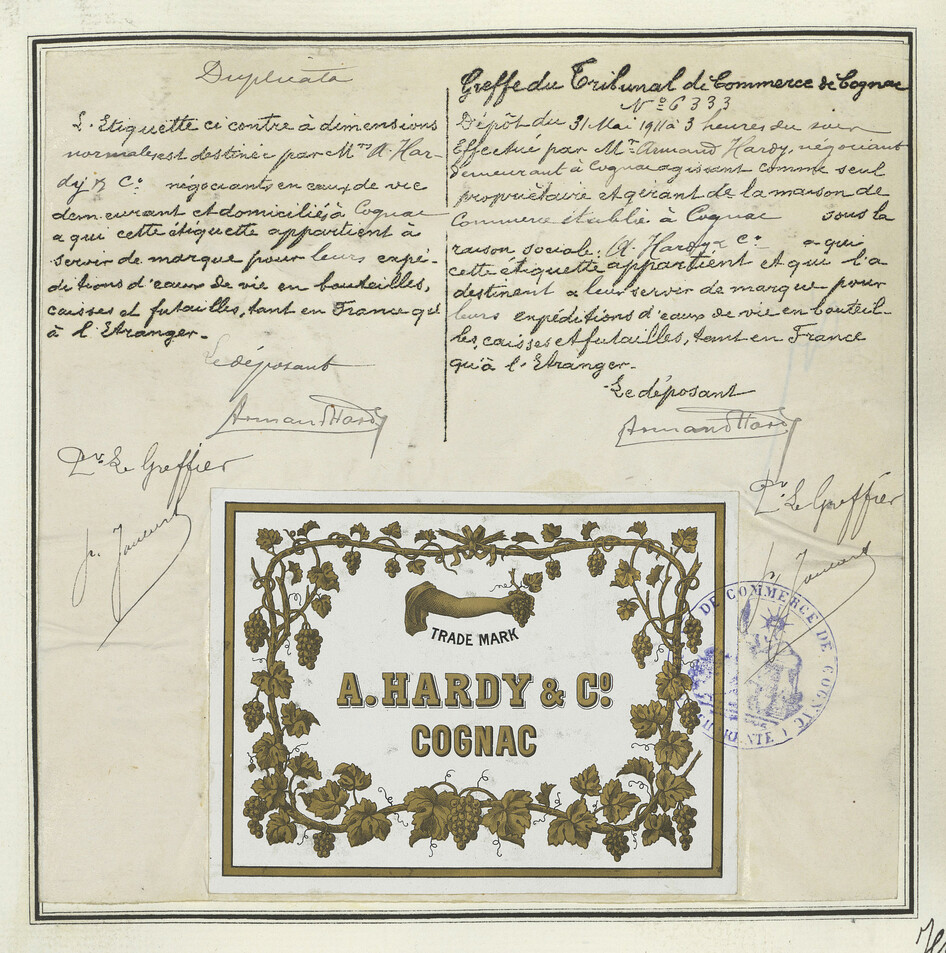 Duplicata
L'Etiquette ci contre à dimensions
normales est destinée par Mrs A. Har-
dy & Co négociants en eaux de vie
demeurant et domiciliés à Cognac
a qui cette étiquette appartient à
servir de marque pour leurs expé-
ditions d'eaux de vie en bouteilles,
caisses et futailles, tant en France qu'
à l'Etranger.
Le déposant
Armand Hardy
Pr Le Greffier
Greffe du Tribunal de Commerce de Cognac
No 6333
Dépôt du 31 Mai 1911 à 3 heures du soir
Effectué par Mr Armand Hardy, négociant
demeurant à Cognac agissant comme seul
propriétaire et gérant de la maison de
Commerce établie à Cognac sous la
raison sociale: A. Hardy & Co a qui
cette étiquette appartient et qui l'a
destinent a leur servir de marque pour
leurs expéditions d'eaux de vie en bouteil-
les, caisses et futailles, tant en France
qu'à l'Etranger.
Le déposant
Armand Hardy
Pr Le Greffier
TRADE MARK
A. HARDY & CO.
COGNAC
DE COMMERCE DE COGNAC
CHARENTE